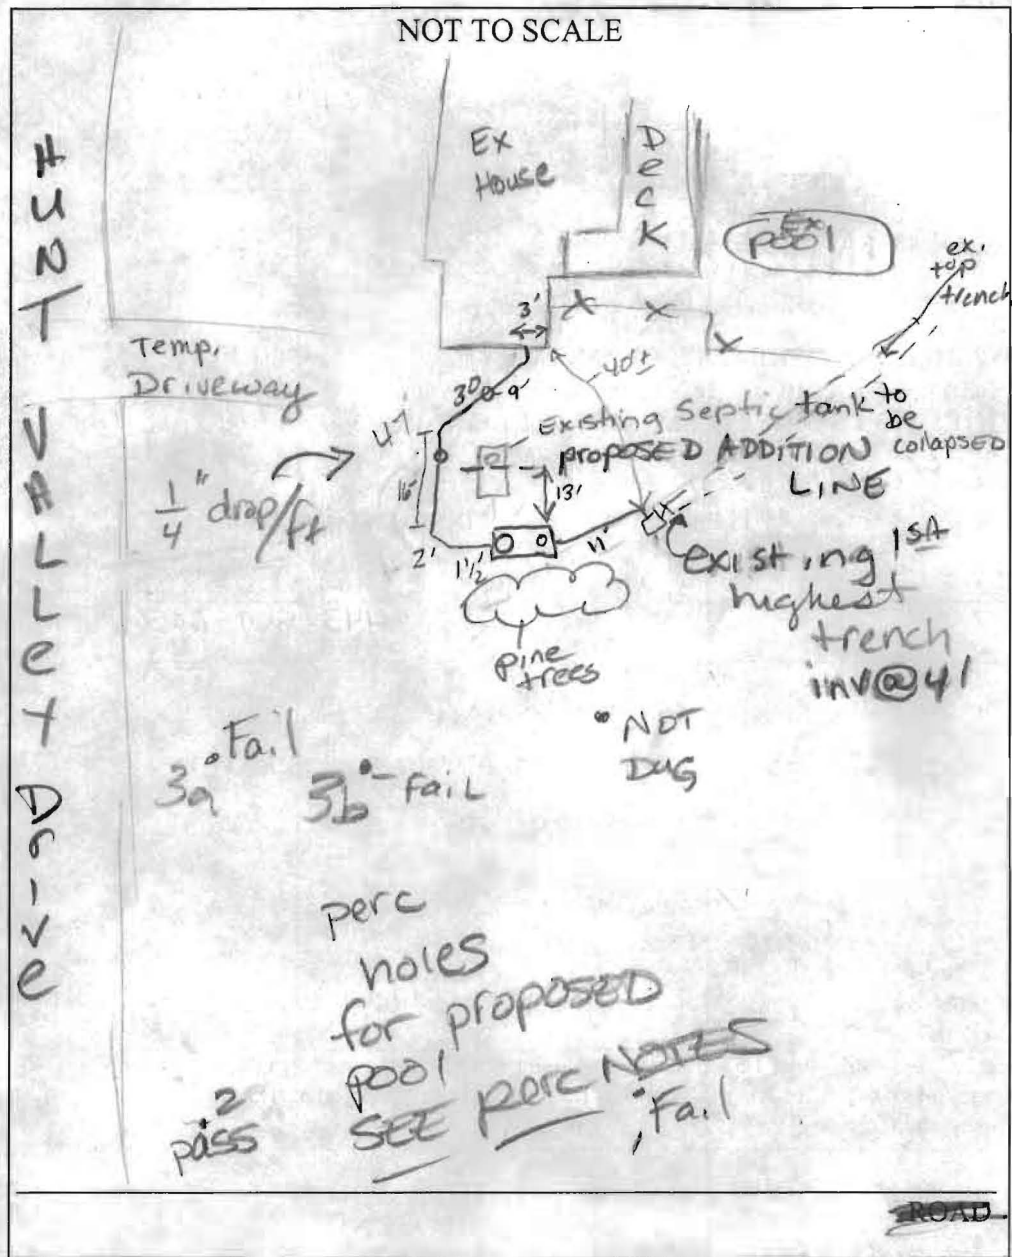 NOT TO SCALE
HUNT VALLEY Drive
Ex
House
Deck
Ex
pool
ex.
top
trench
3'
Temp.
Driveway
40'±
9'
Existing septic tank to
be
collapsed
proposed ADDITION
LINE
1/4" drop/ft
16'
13'
2'
1 1/2'
11'
existing 1st
highest
trench
inv@4'
pine
trees
NOT
DUG
Fail
3a
3b - Fail
perc
holes
for proposed
pool
SEE perc NOTES
2
pass
Fail
ROAD